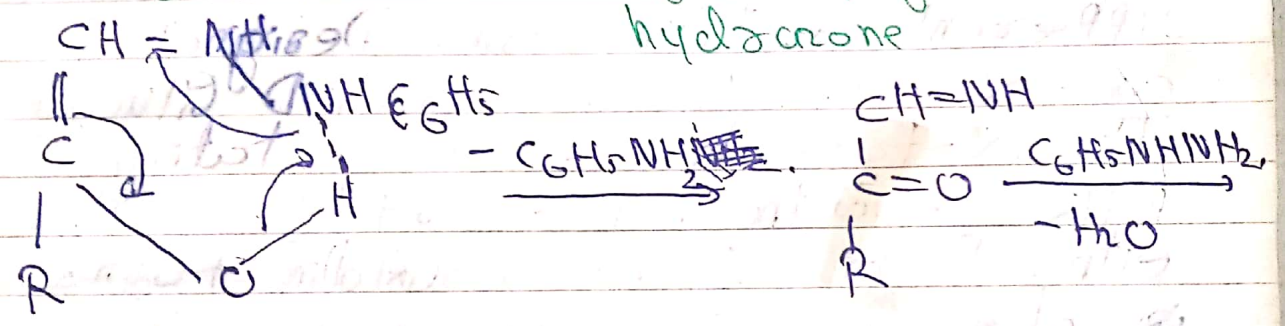 hydrazone
CH = NH
NHC6H5
C
H
R
O
- C6H5NH2
CH=NH
C=O
R
C6H5NHNH2
- H2O